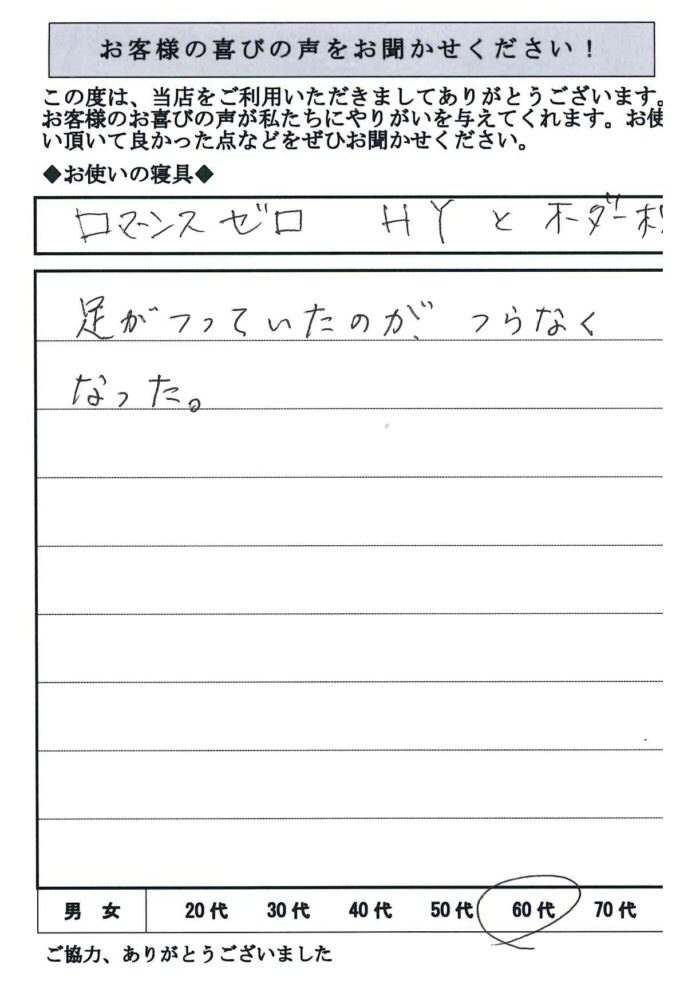 お客様の喜びの声をお聞かせください！
この度は、当店をご利用いただきましてありがとうございます。
お客様のお喜びの声が私たちにやりがいを与えてくれます。お使
い頂いて良かった点などをぜひお聞かせください。
◆お使いの寝具◆
ロマーンスゼロ HYとホーダー
足がつっていたのが、つらなく
なった。
男 女 20代 30代 40代 50代 60代 70代
ご協力、ありがとうございました